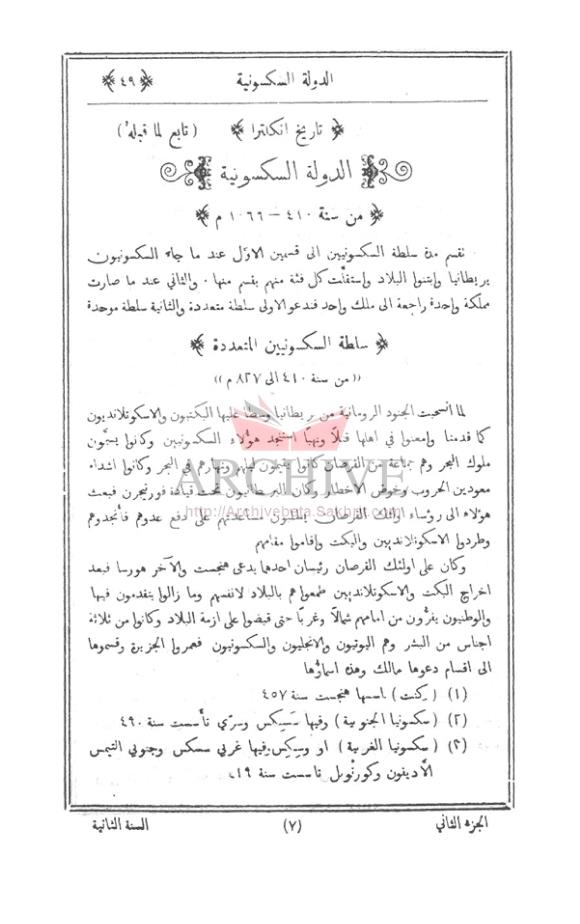 الدولة السكسونية ﴿٤٩﴾
﴿ تاريخ انكلترا ﴾ ( تابع لما قبله )
الدولة السكسونية
﴿ من سنة ٤١٠ – ١٠٦٦ م ﴾
نقسم مدة سلطة السكسونيين الى قسمين الاوّل عند ما جاء السكسونيون
بريطانيا وابتنوا البلاد واستقلَّت كل فئة منهم بقسم منها · والثاني عند ما صارت
مملكة واحدة راجعة الى ملك واحد فندعو الاولى سلطة متعددة والثانية سلطة موحدة
﴿ سلطة السكسونيين المتعددة ﴾
«من سنة ٤١٠ الى ٨٢٧ م»
لما انسحبت الجنود الرومانية من بريطانيا وسطا عليها البكتيون والاسكوتلانديون
كما قدمنا وامعنوا في اهلها قتلاً ونهباً استنجد هؤلاء السكسونيين وكانوا يسمَّون
ملوك البحر وهم جماعة من القرصان كانوا يقضون ليلهم ونهارهم في البحر وكانوا اشداء
معودين الحروب وخوض الاخطار وكان البريطانيون تحت قيادة فورتيجرن فبعث
هؤلاء الى رؤساء اولئك القرصان يطلبون مساعدتهم على دفع عدوهم فأنجدوهم
وطردوا الاسكوتلانديين والبكت واقاموا مقامهم
وكان على اولئك القرصان رئيسان احدهما يدعى هنجست والآخر هورسا فبعد
اخراج البكت والاسكوتلانديين طمعوا هم بالبلاد لانفسهم وما زالوا يتقدمون فيها
والوطنيون يفرُّون من امامهم شمالاً وغرباً حتى قبضوا على ازمة البلاد وكانوا من ثلاثة
اجناس من البشر وهم اليوتيون والانجليون والسكسونيون فعمروا الجزيرة وقسموها
الى اقسام دعوها ممالك وهذه اسماؤها
(١) (كنت) اسسها هنجست سنة ٤٥٧
(٢) (سكسونيا الجنوبية) وفيها سَسِيكس وسرّي تأسست سنة ٤٩٠
(٣) (سكسونيا الغربية) او وسِيكس وفيها غربي سسكس وجنوبي التيمس
الَّا ديفون وكورنْويل تاسست سنة ٥١٩
الجزء الثاني (٧) السنة الثانية
ARCHIVE
http://Archivebeta.Sakhrit.com